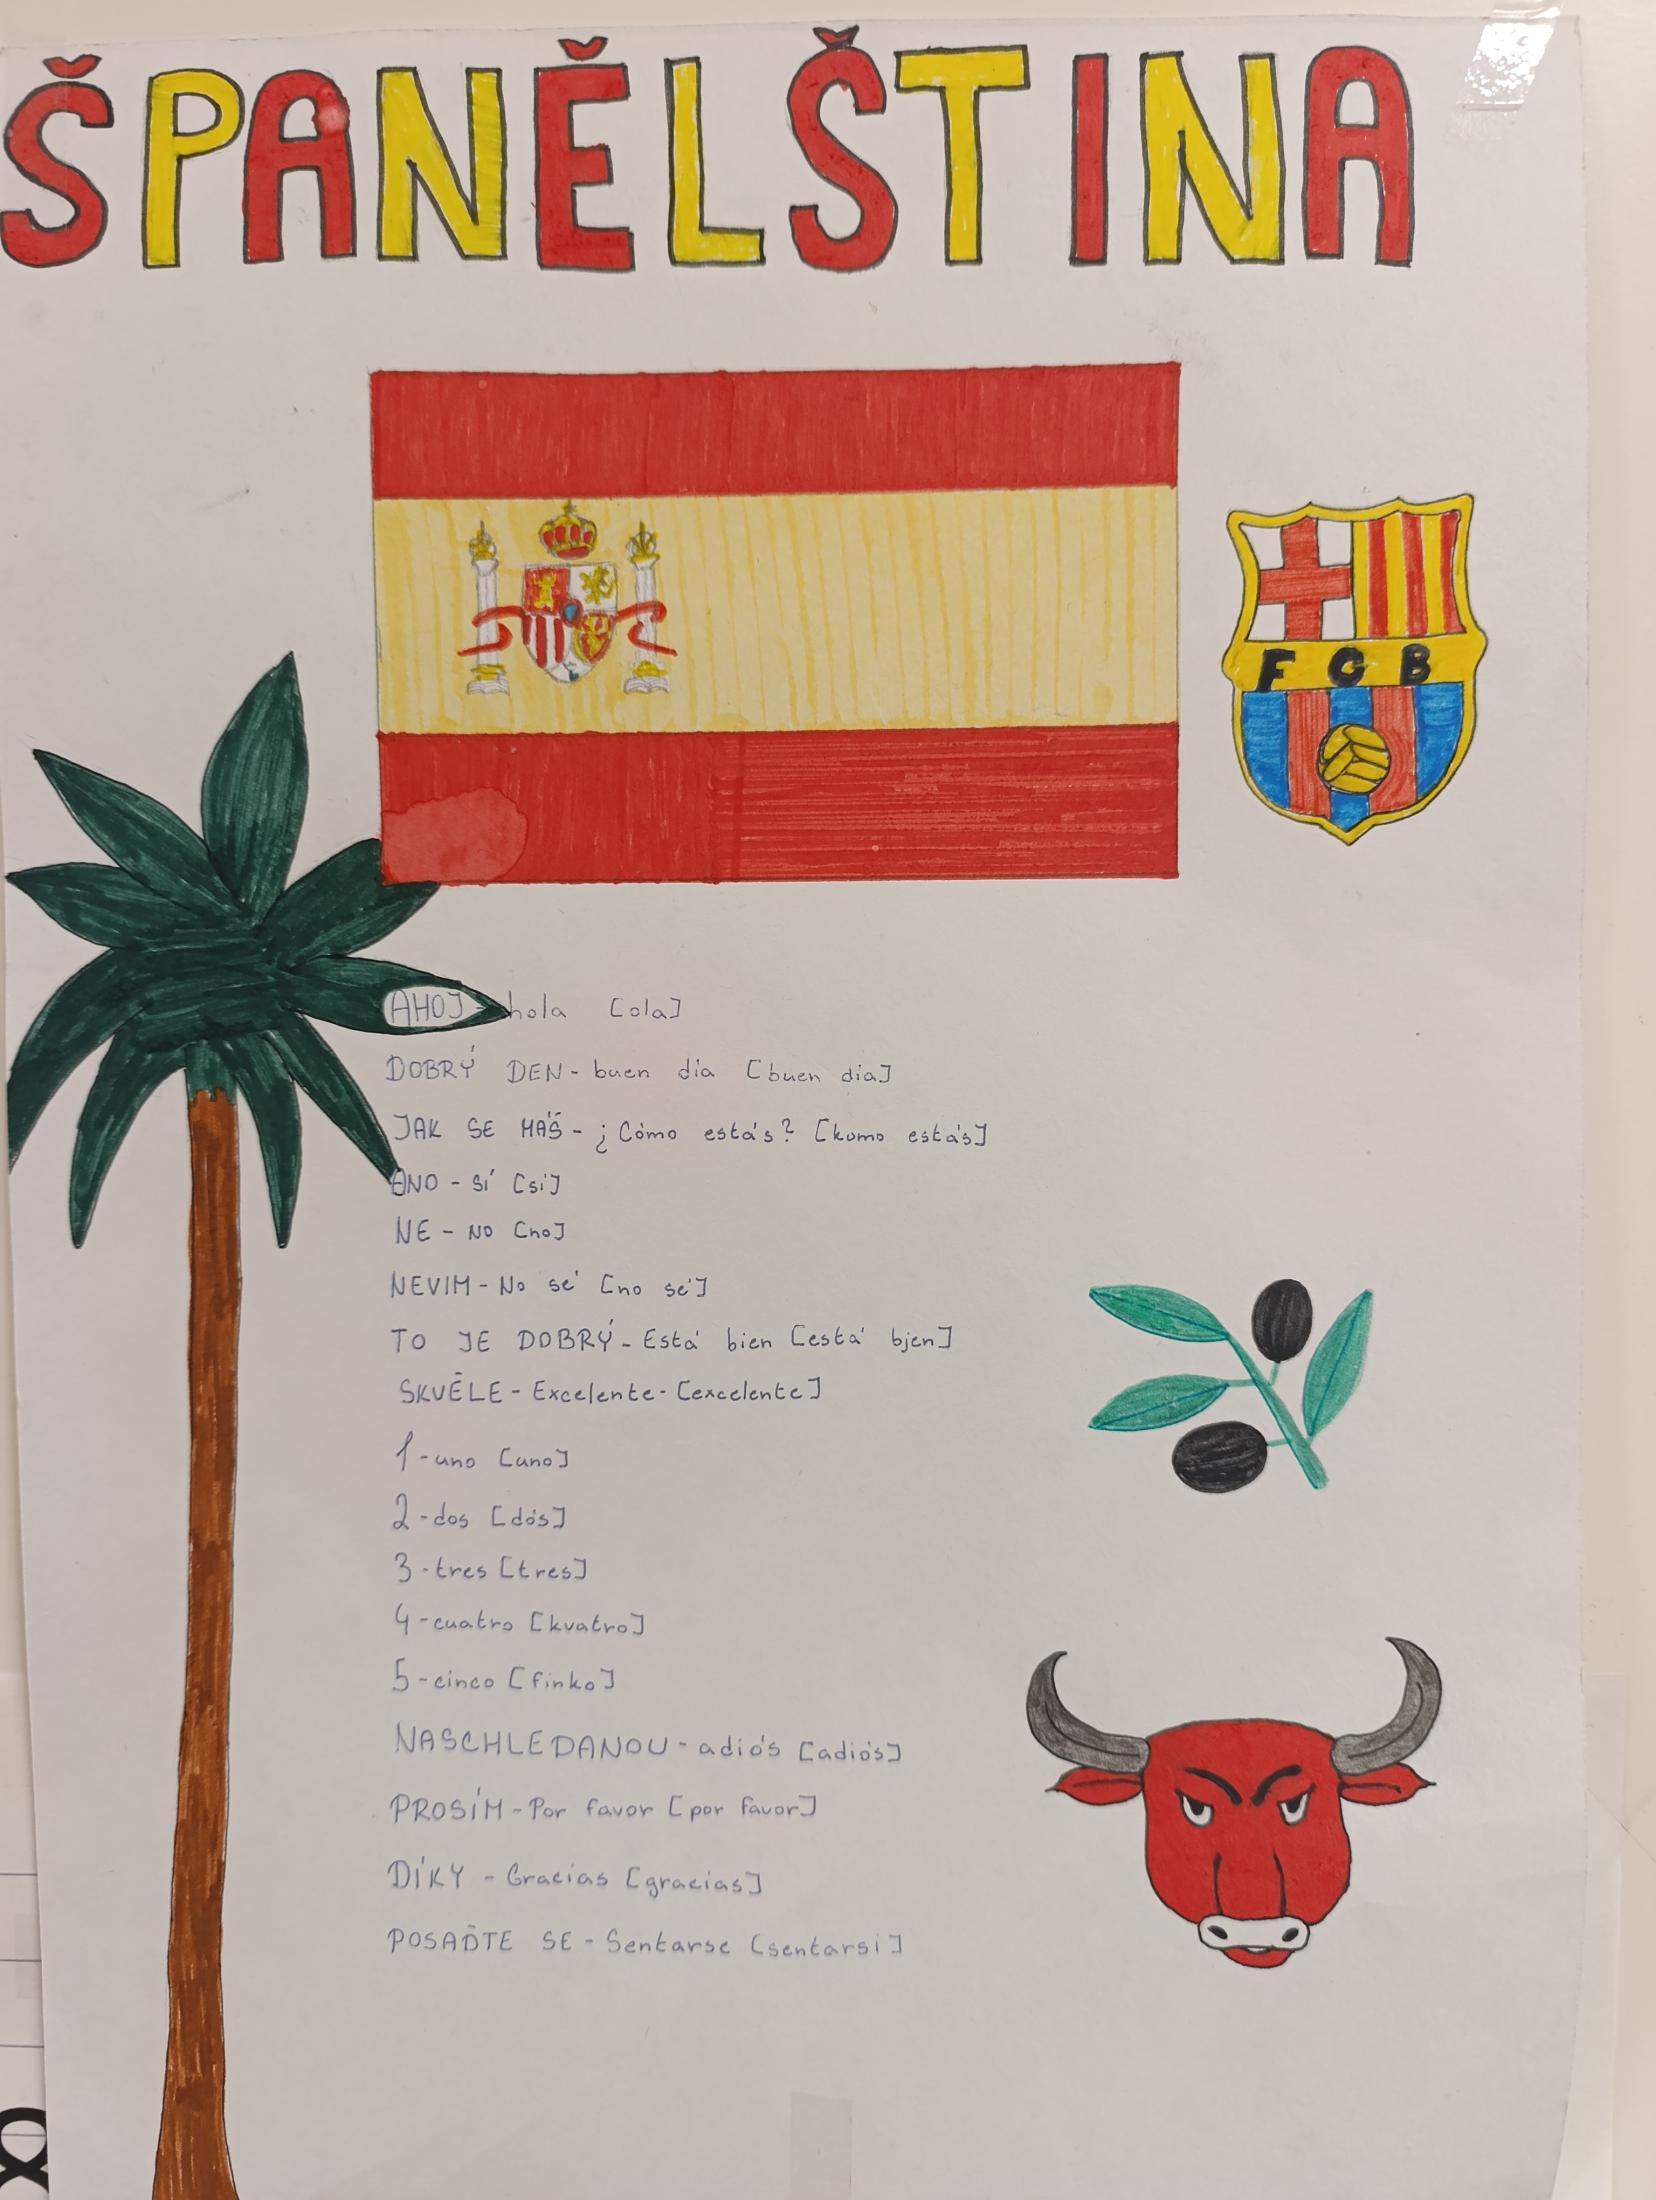 ŠPANĚLŠTINA
FCB
AHOJ - hola [ola]
DOBRÝ DEN - buen dia [buen dia]
JAK SE MÁŠ - ¿Cómo estás? [komo estás]
ANO - sí [sí]
NE - NO [no]
NEVIM - No sé [no sé]
TO JE DOBRÝ - Está bien [está bjen]
SKVĚLE - Excelente - [excelente]
1 - uno [uno]
2 - dos [dós]
3 - tres [tres]
4 - cuatro [kvatro]
5 - cinco [finko]
NASCHLEDANOU - adiós [adiós]
PROSÍM - Por favor [por favor]
DÍKY - Gracias [gracias]
POSAĎTE SE - Sentarse [sentarsi]